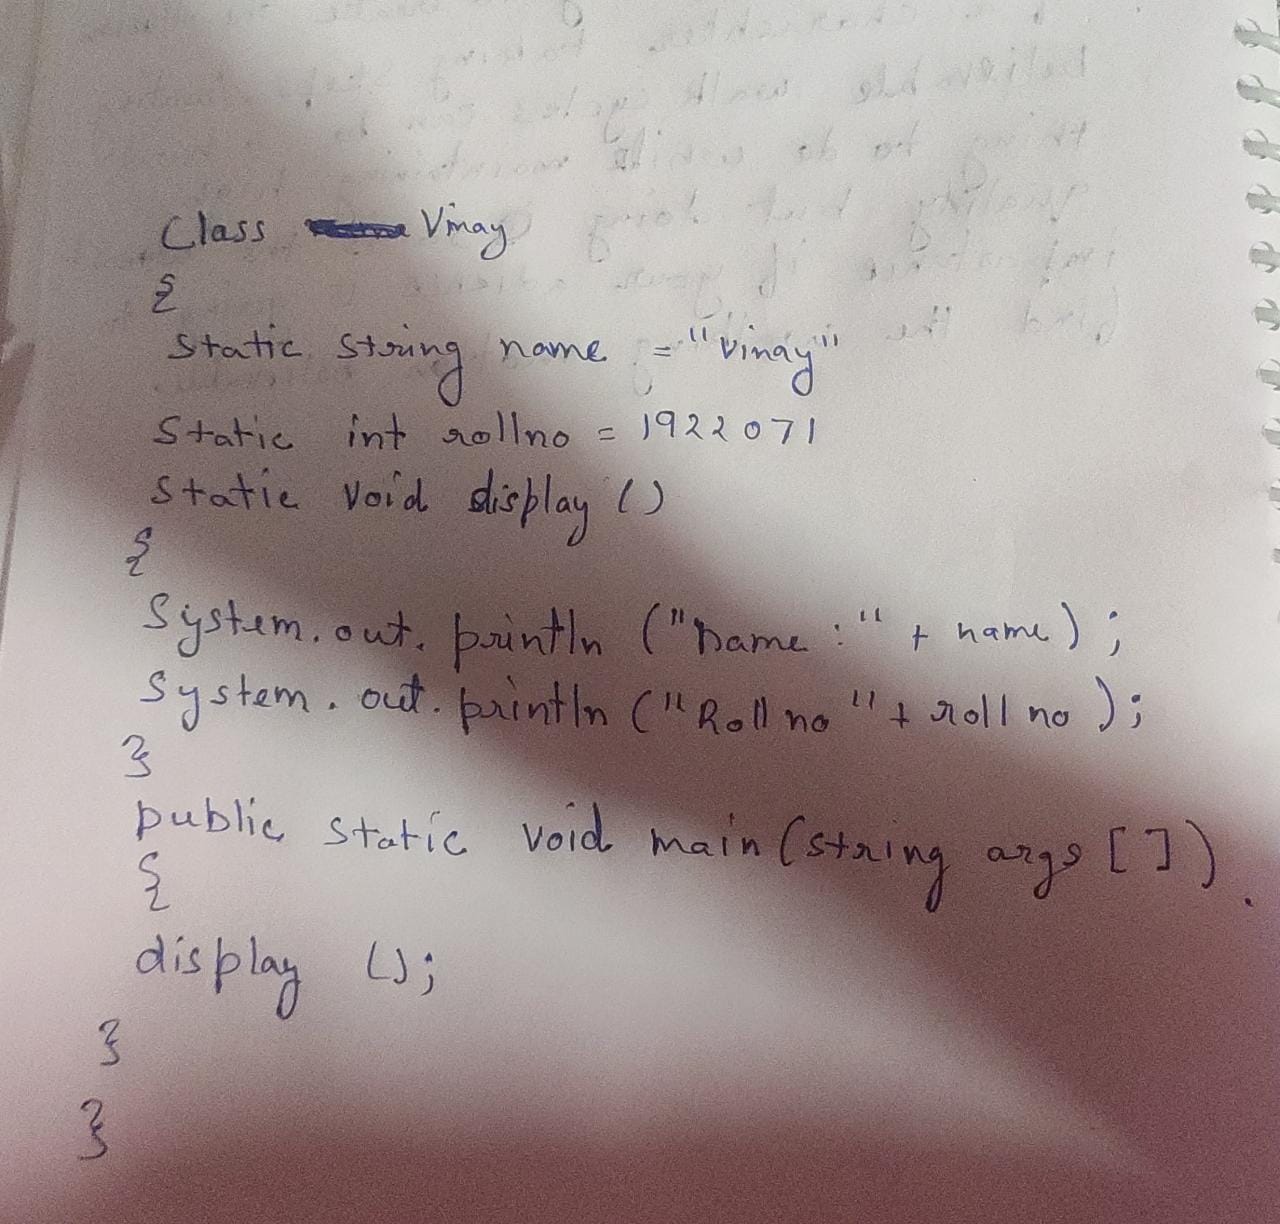 Class Vinay
{
static string name = "vinay"
Static int rollno = 1922071
static void display ()
{
System.out.println ("name :" + name) ;
System.out.println ("Roll no" + roll no );
}
public static void main (string args [ ]).
{
display ();
}
}